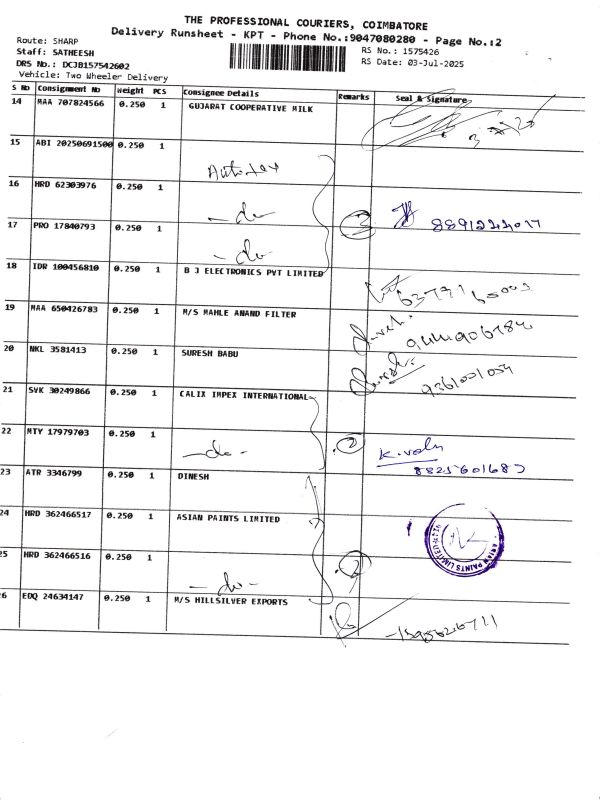 THE PROFESSIONAL COURIERS, COIMBATORE
Delivery Runsheet - KPT - Phone No.:9047080280 - Page No.:2
Route: SHARP
Staff: SATHEESH
DRS No.: DCJB157542602
Vehicle: Two Wheeler Delivery
RS No.: 1575426
RS Date: 03-Jul-2025
S No Consignment No Weight PCS Consignee Details Remarks Seal & Signature
14 MAA 707824566 0.250 1 GUJARAT COOPERATIVE MILK
15 ABI 20250691500 0.250 1
16 HRD 62303976 0.250 1 -do-
17 PRO 17840793 0.250 1 -do-
3 8891244017
18 IDR 100456810 0.250 1 B J ELECTRONICS PVT LIMITED
19 MAA 650426783 0.250 1 M/S MAHLE ANAND FILTER
20 NKL 3581413 0.250 1 SURESH BABU
21 SVK 30249866 0.250 1 CALIX IMPEX INTERNATIONAL
22 MTY 17979703 0.250 1 -do- 2
23 ATR 3346799 0.250 1 DINESH
24 HRD 362466517 0.250 1 ASIAN PAINTS LIMITED
ASIAN PAINTS LIMITED
25 HRD 362466516 0.250 1 -do- 2
26 EDQ 24634147 0.250 1 M/S HILLSILVER EXPORTS